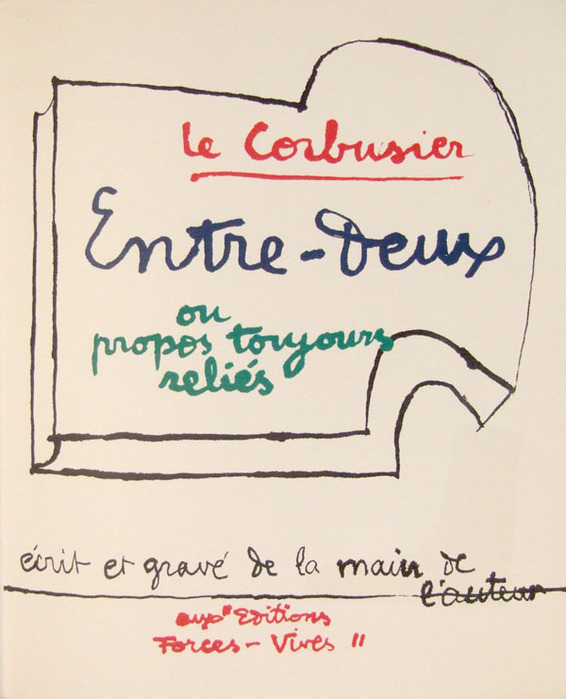 Le Corbusier
Entre-Deux
ou
propos toujours
reliés
écrit et gravé de la main de
l'auteur
aux "Editions
Forces-Vives "